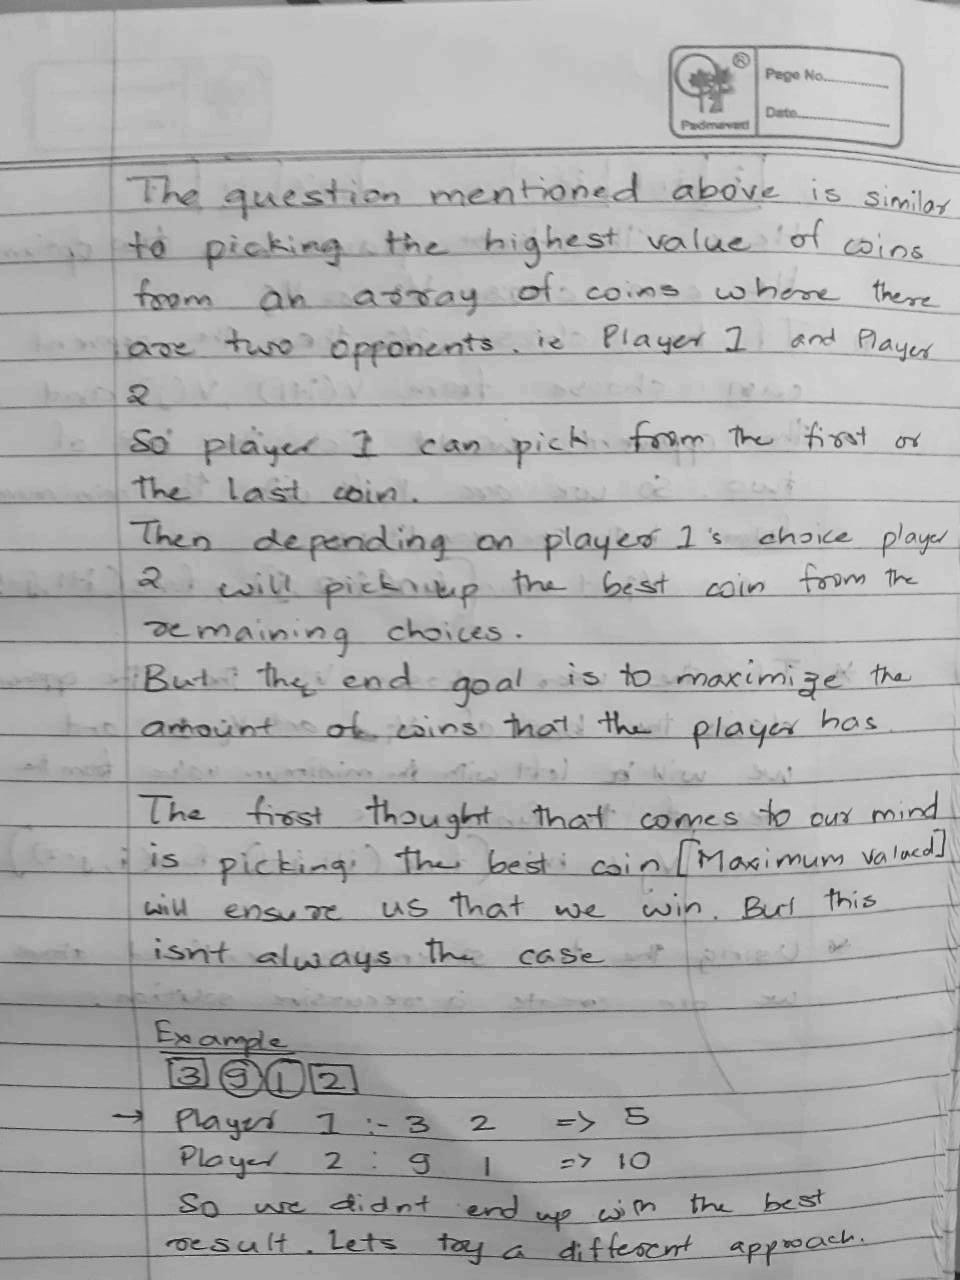 Padmavati
®
Page No...............
Date.....................
The question mentioned above is similar
to picking the highest value of coins
from an array of coins where there
are two opponents. ie Player 1 and Player
2
So player 1 can pick from the first or
the last coin.
Then depending on player 1's choice player
2 will pick up the best coin from the
remaining choices.
But the end goal is to maximize the
amount of coins that the player has
The first thought that comes to our mind
is picking the best coin [Maximum valued]
will ensure us that we win. But this
isnt always the case
Example
3 9 1 2
→ Player 1 :- 3 2 => 5
Player 2 : 9 1 => 10
So we didnt end up with the best
result. Lets try a different approach.